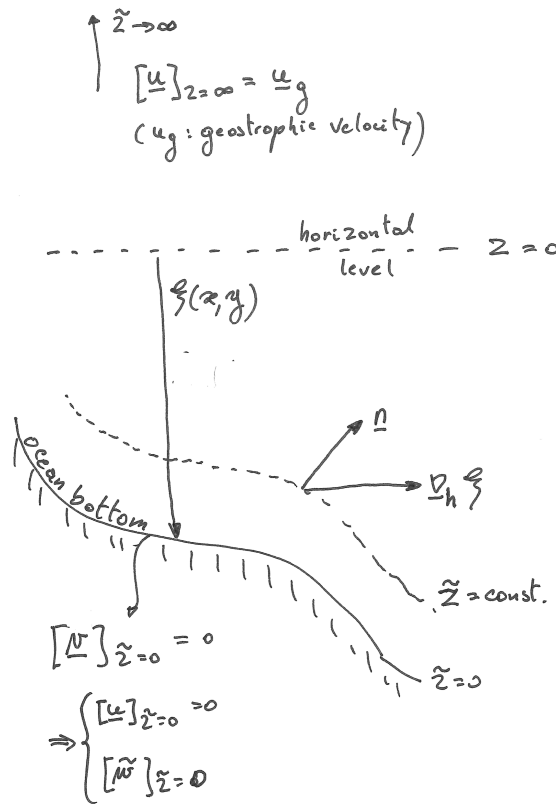 z̃→∞
[u]_{z=∞} = u_g
(u_g : geostrophic velocity)
horizontal
level
z = 0
ξ(x,y)
n
∇_h ξ
ocean bottom
z̃ = const.
z̃=0
[v]_{z̃=0} = 0
⇒ { [u]_{z̃=0} = 0
[w̃]_{z̃=0} = 0